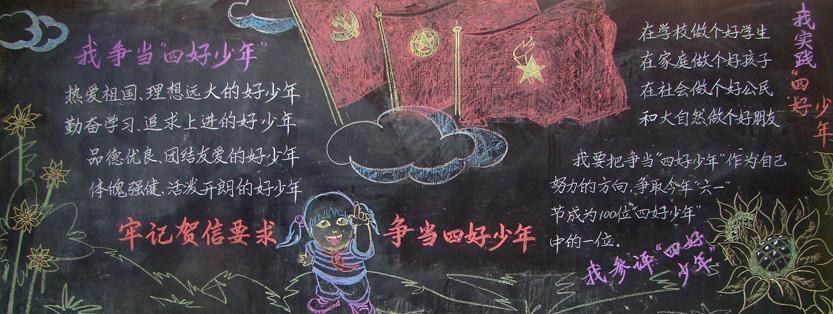 我争当“四好少年”
热爱祖国、理想远大的好少年
勤奋学习、追求上进的好少年
品德优良、团结友爱的好少年
体魄强健、活泼开朗的好少年
牢记贺信要求
争当四好少年
在学校做个好学生
在家庭做个好孩子
在社会做个好公民
和大自然做个好朋友
我实践“四好
少年”
我要把争当“四好少年”作为自己
努力的方向，争取今年“六一”
节成为100位“四好少年”
中的一位。
我参评“四好
少年”